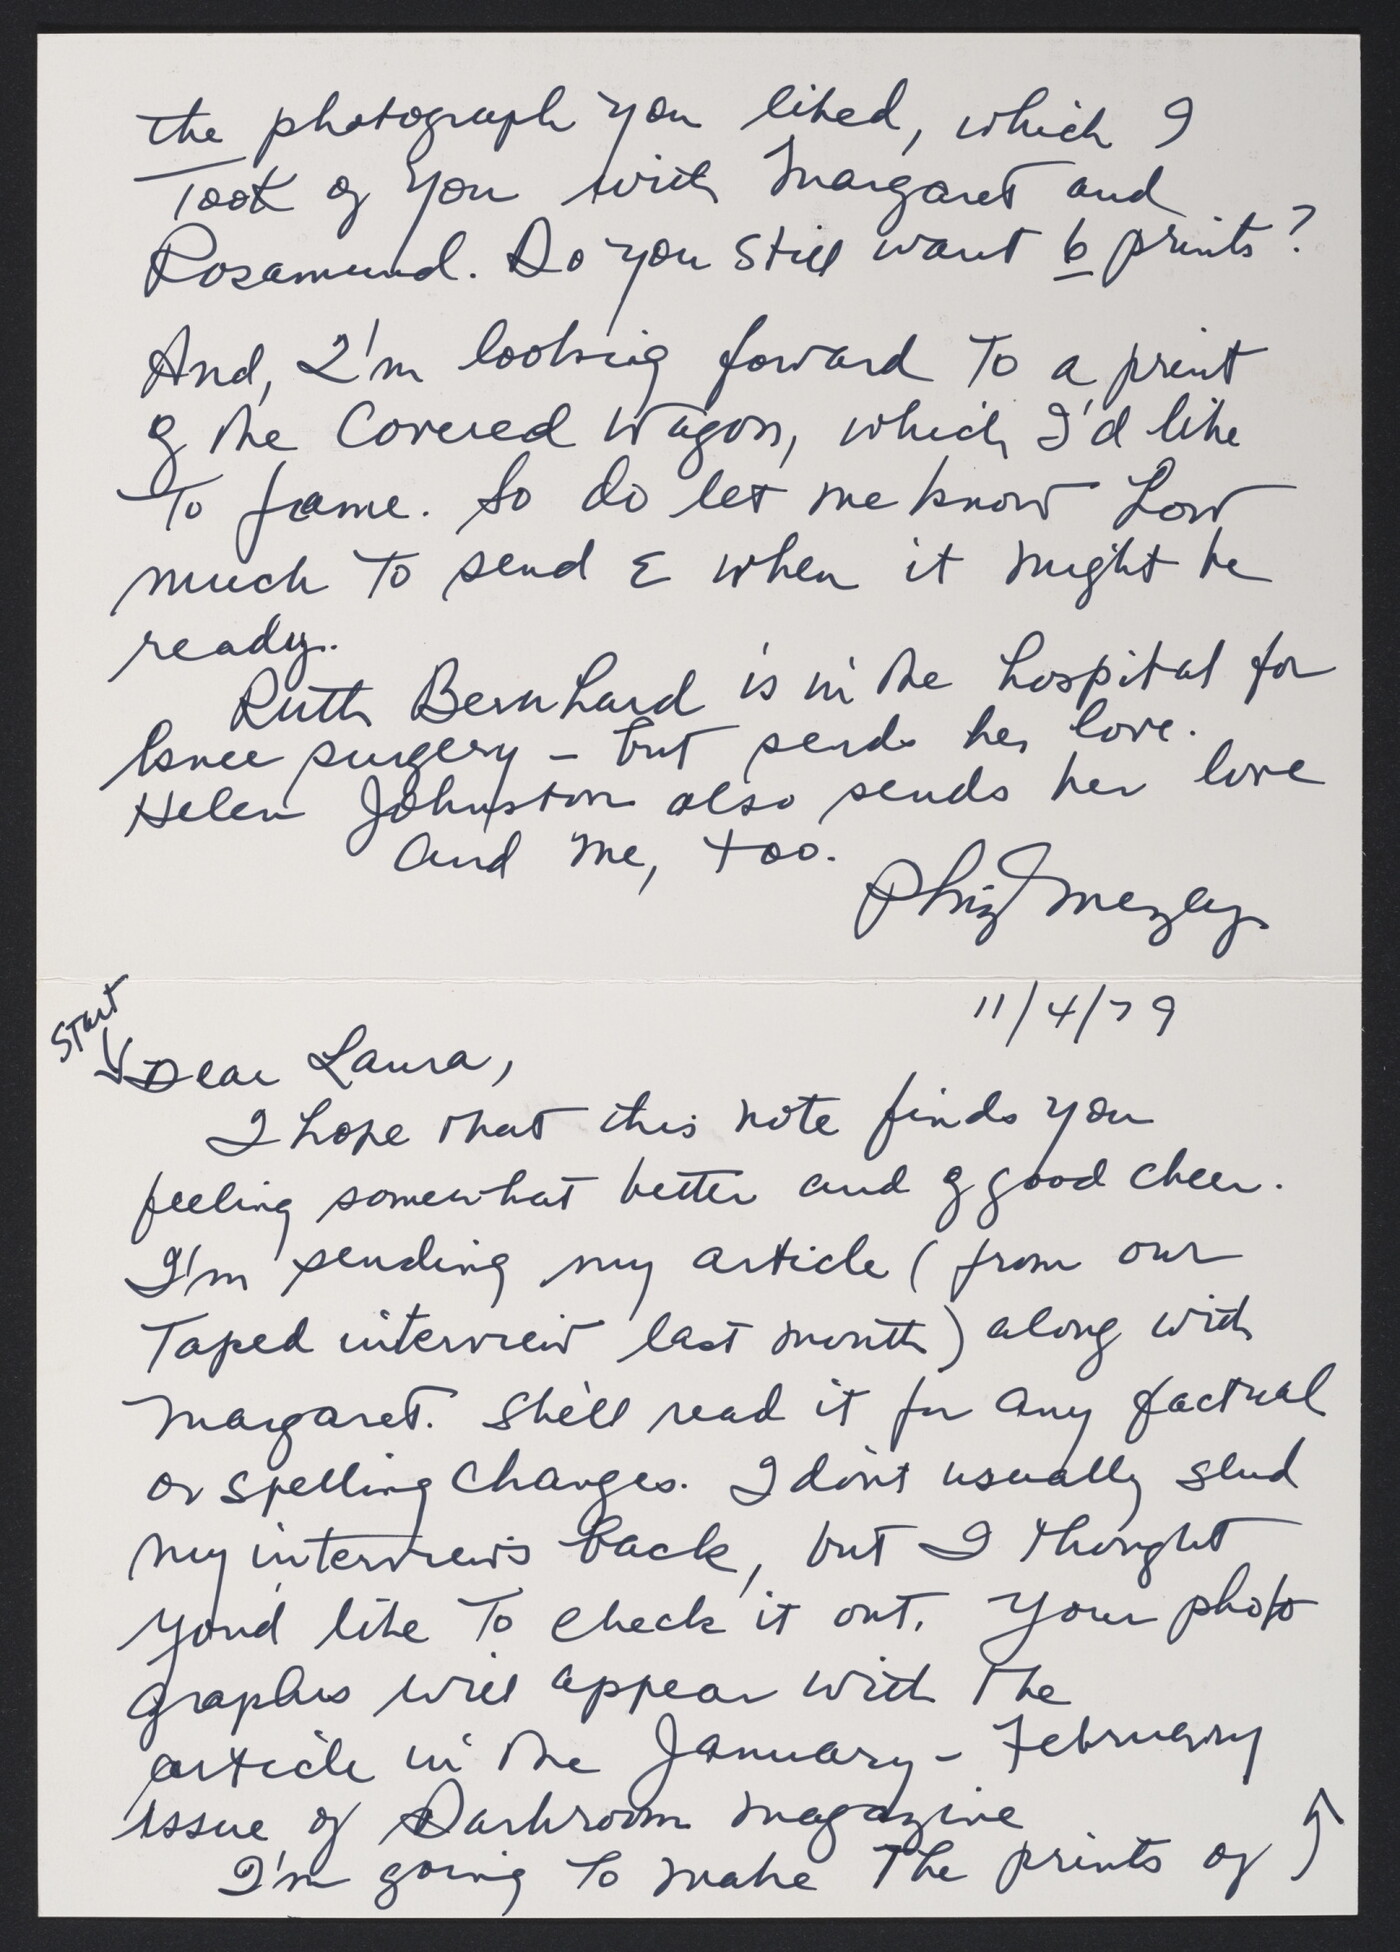 11/4/79
Start
Dear Laura,
I hope that this note finds you
feeling somewhat better and of good cheer.
I'm sending my article (from our
Taped interview last month) along with
Margaret. She'll read it for any factual
or spelling changes. I don't usually send
my interviews back, but I thought
you'd like To check it out. Your photo
graphs will appear with The
article in the January - February
issue of Darkroom magazine
I'm going To make The prints of
the photograph you liked, which I
Took of you with Margaret and
Rosamund. Do you still want 6 prints?
And, I'm looking forward To a print
of the Covered Wagon, which I'd like
To frame. So do let me know how
much To send & when it might be
ready.
Ruth Bernhard is in the hospital for
knee surgery - but sends her love.
Helen Johnston also sends her love
and me, too.
Phiz Mezey